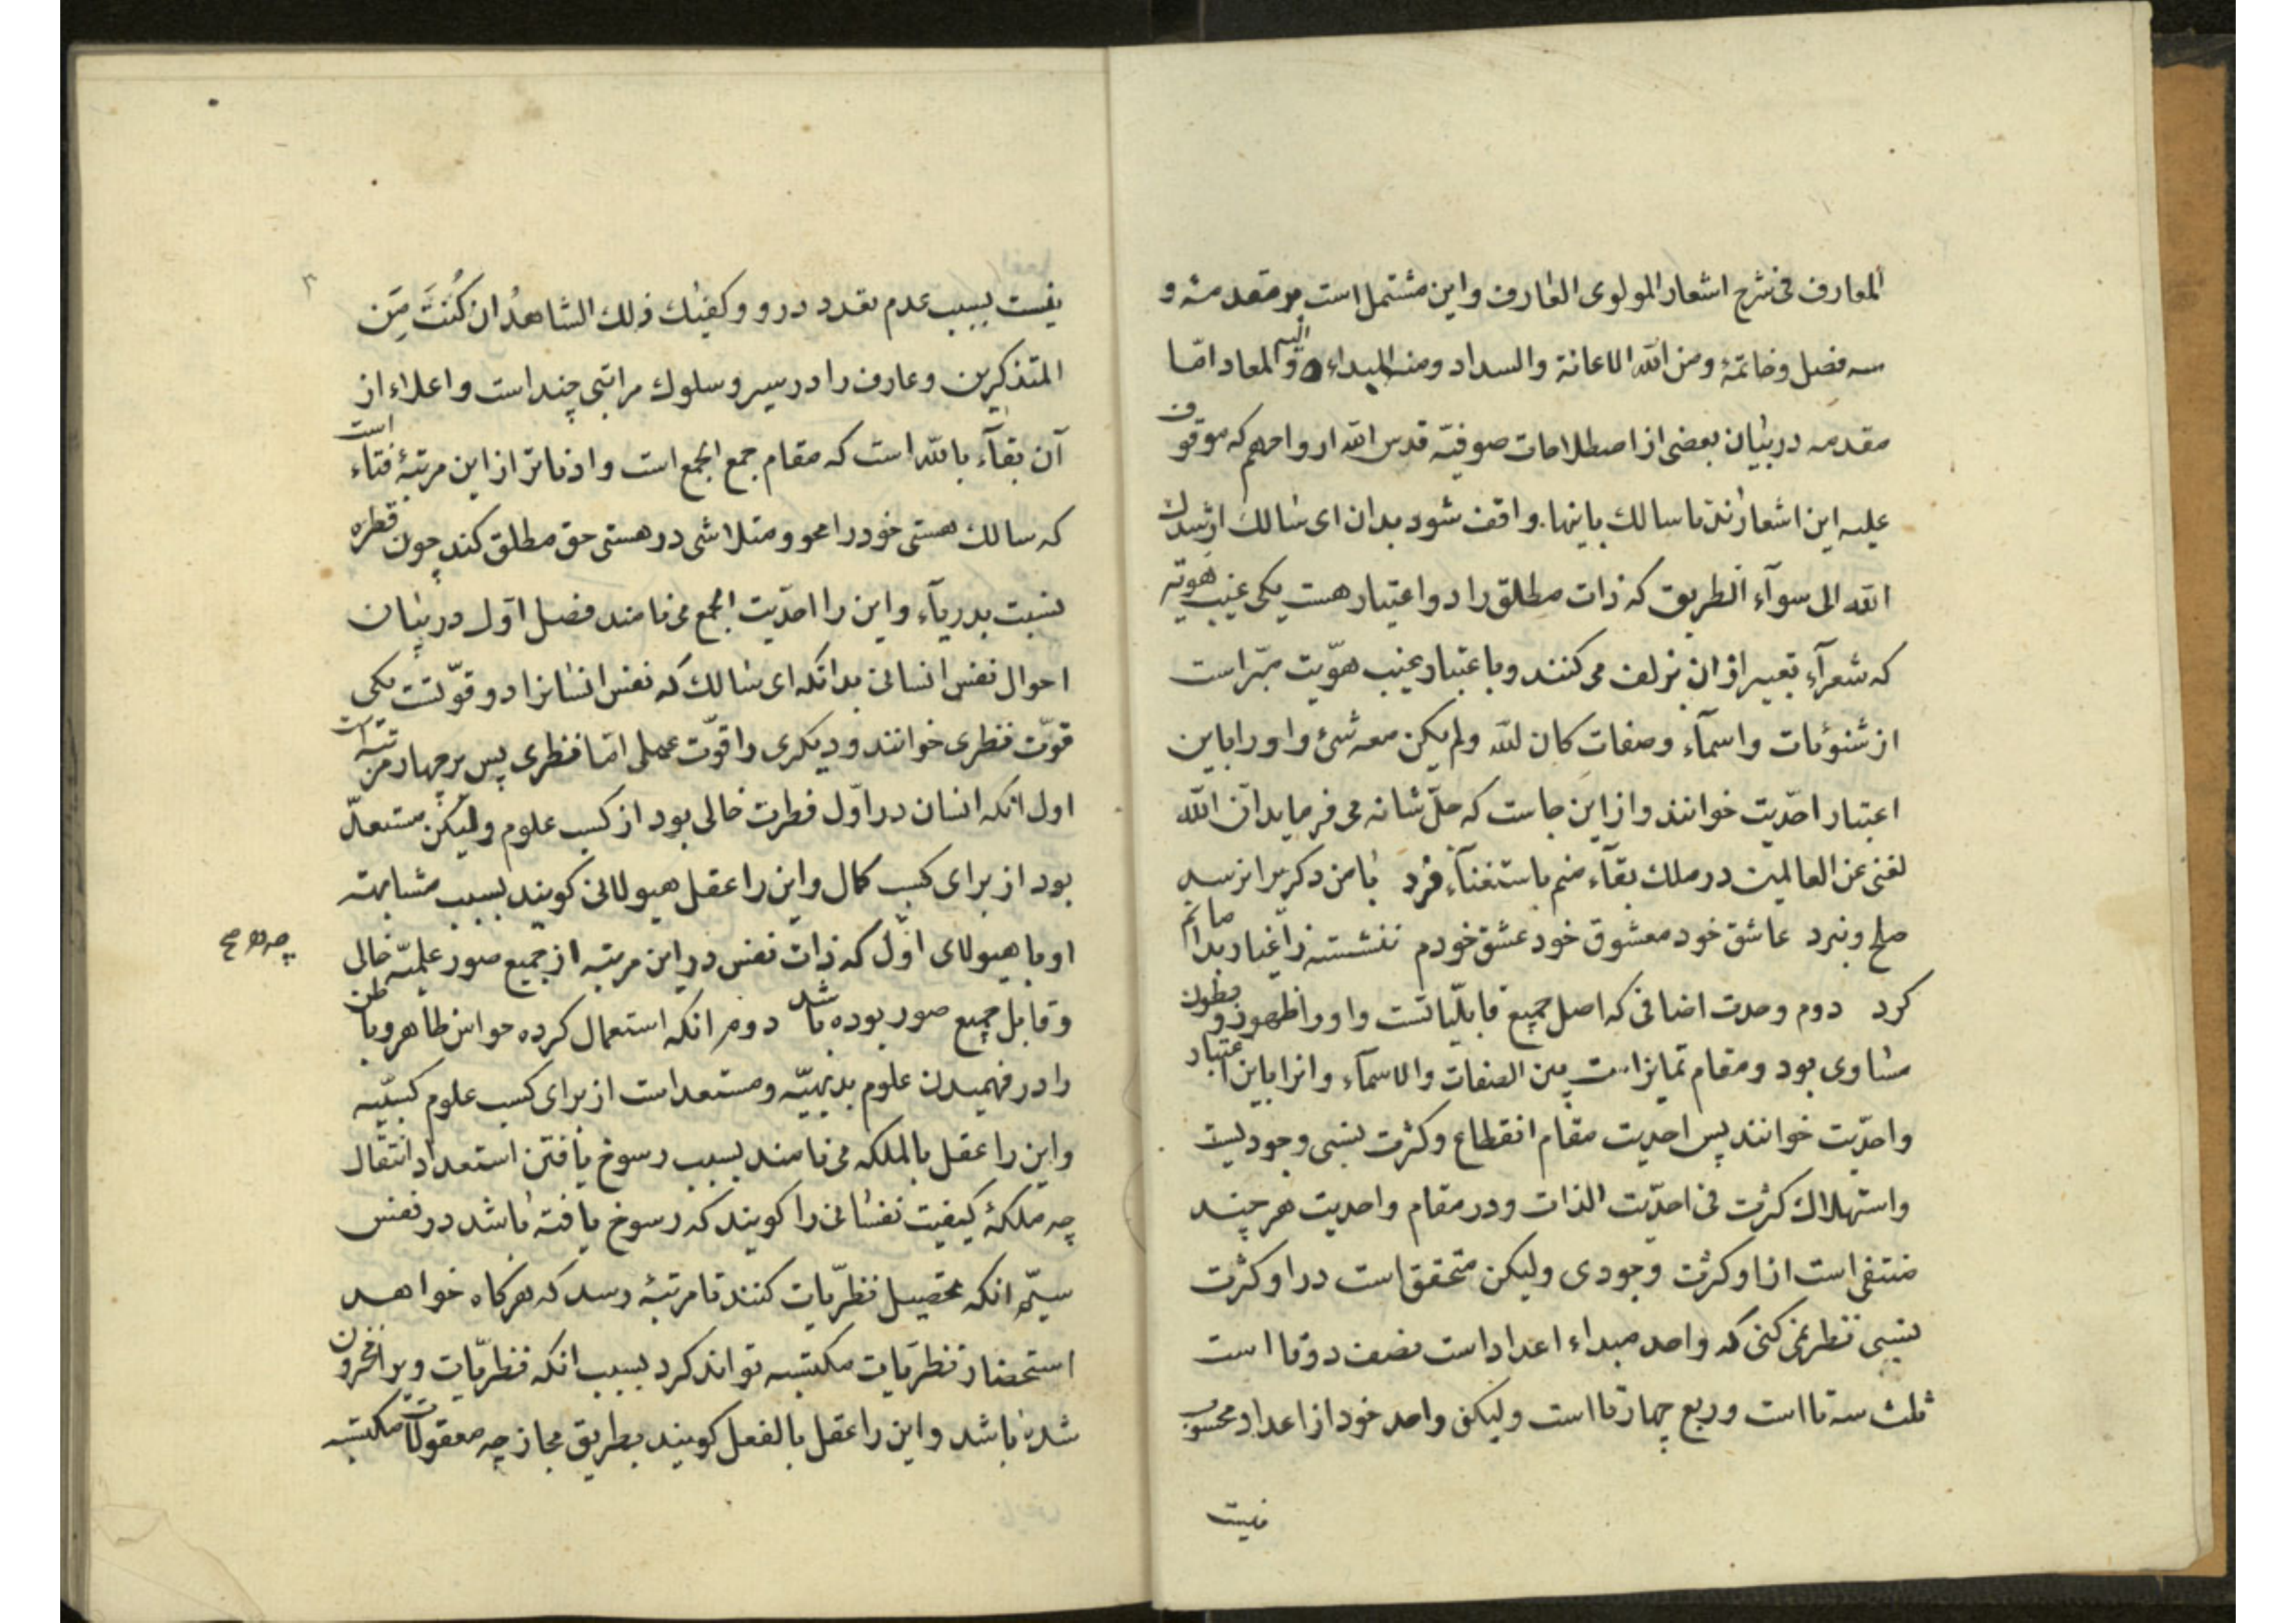 المعارف فی شرح اشعار المولوی العارف واین مشتمل است بر مقدمۀ و
سه فصل وخاتمۀ ومن الله الاعانة والسداد ومنه المبداء والیه المعاد امّا
مقدمه در بیان بعضی از اصطلاحات صوفیّه قدس الله ارواحهم که موقوف
علیه این اشعارند تا سالک باینها واقف شود بدان ای سالک ارشدک
الله الی سوآء الطریق که ذات مطلق را دو اعتبار هست یکی غیب هویّه
که شعرآء تعبیر از ان بزلف می کنند وباعتبار غیب هوّیت مبرّاست
از شئونات واسمآء وصفات کان لله ولم یکن معه شئ واو را باین
اعتبار احدّیت خوانند واز این جاست که جلّ شانه می فرماید انّ الله
لغنی عن العالمین در ملک بقآء منم باستغنآء فرد با من دگریرا نرسد
صلح ونبرد عاشق خود معشوق خود عشق خودم ننشسته ز اغیار بدامانم
کرد دوم وحدت اضافی که اصل جمیع قابلّیاتست واو را ظهور و بطون
مساوی بود ومقام تمایز است بین الصفات والاسمآء وانرا باین اعتبار
واحدّیت خوانند پس احدیت مقام انقطاع وکثرت نسبی وجودیست
واستهلاک کثرت فی احدّیت الذات ودر مقام واحدیت هر چند
منتفی است از او کثرت وجودی ولیکن متحقق است در او کثرت
نسبی نظر نمی کنی که واحد مبداء اعداد است نصف دوتا است
ثلث سه تا است وربع چهارتا است ولیکن واحد خود از اعداد محسوب
نیست
۲
نیست بسبب عدم تعدد در و وکفیٰک ذلک الشاهدُ ان کُنتَ مِنَ
المتذکرین وعارف را در سیر وسلوک مراتبی چند است واعلاء از
آن بقآء بالله است که مقام جمع الجمع است وادناتر از این مرتبۀ فناء است
که سالک هستی خود را محو ومتلاشی در هستی حق مطلق کند چون قطره
نسبت بدریآء واین را احدّیت الجمع می نامند فصل اوّل در بیان
احوال نفس انسانی بدانکه ای سالک که نفس انسانرا دو قوّتست یکی
قوّت نظری خوانند ودیکری را قوّت عملی امّا نظری پس بر چهار مرتبه است
اول انکه انسان در اوّل فطرت خالی بود از کسب علوم ولیکن مستعدّ
بود از برای کسب کمال واین را عقل هیولانی کویند بسبب مشابهته
او با هیولای اوّل که ذات نفس در این مرتبه از جمیع صور علمیّه خالی
وقابل جمیع صور بوده باشد دوم انکه استعمال کرده حواس ظاهر وباطن
را در فهمیدن علوم بدیهیّه ومستعد است از برای کسب علوم کسبّیه
واین را عقل بالملکه می نامند بسبب رسوخ یافتن استعداد انتقال
چه ملکۀ کیفیت نفسانی را کویند که رسوخ یافته باشد در نفس
سیّم انکه تحصیل نظرّیات کنند تا مرتبۀ رسد که هرکاه خواهد
استحضار نظرّیات مکتسبه تواند کرد بسبب انکه نظرّیات ویرا مخزون
شده باشد واین را عقل بالفعل کویند بطریق مجاز چه معقولات مکتسبه